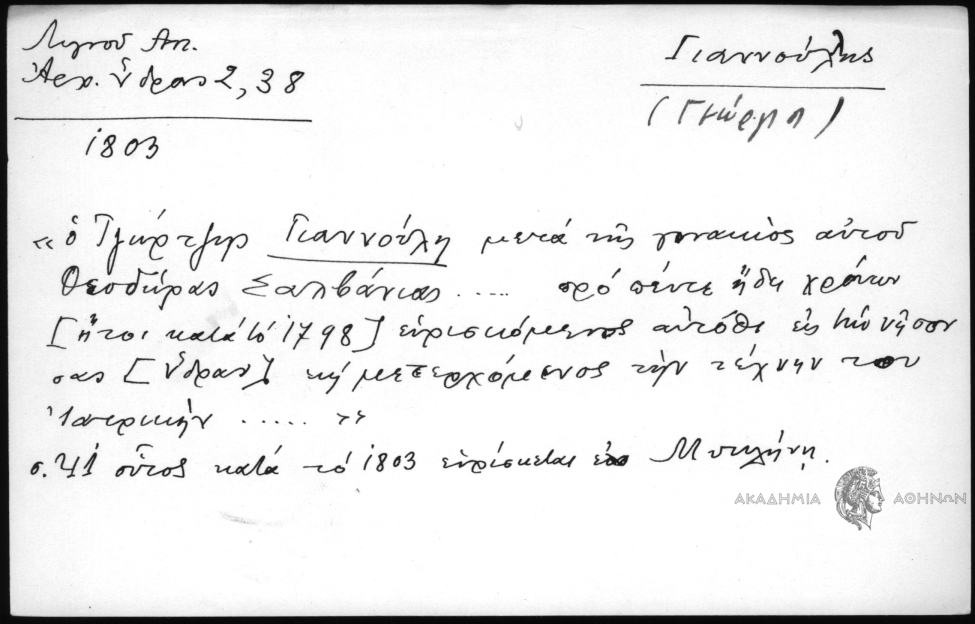 Λιγνού Αντ.
Ἀρχ. Ὕδρας 2, 38
1803
Γιαννούλης
(Γεώργη)
«ὁ Τζώρτζη Γιαννούλη μετά τῆς γυναικός αὐτοῦ
Θεοδώρας Σαλβάνιας ..... πρό πέντε ἤδη χρόνων
[ἤτοι κατά τό 1798] εὑρισκόμενος αὐτόθι εἰς τήν νῆσον
σας [Ὕδραν] κ μετερχόμενος τήν τέχνην του
Ἰατρικήν ..... »
σ. 41 οὗτος κατά τό 1803 εὑρίσκεται Μυτιλήνη.
ΑΚΑΔΗΜΙΑ ΑΘΗΝΩΝ